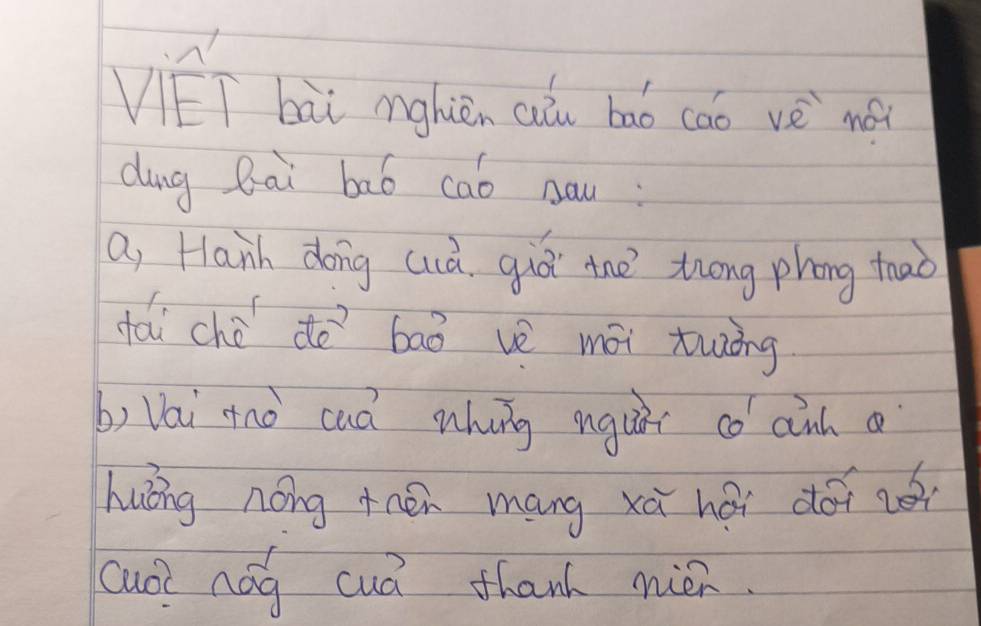 VIẾT bài nghiên cứu báo cáo về nội
dung bài báo cáo sau :
a, Hành động của giới trẻ trong phong trào
tái chế để bảo vệ môi trường.
b) Vai trò của những người có ảnh
hưởng rộng trên mạng xã hội đối với
cuộc sống của thanh niên.